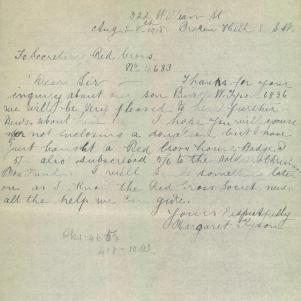 322 William St
Aug 28th 1918. Broken Hill N.S.W.
To Secretary Red Cross.
No 4683
Dear Sir Thanks for your
enquiry about our son Burt W. Tyson 1836
we will be very pleased to hear further
News about him I hope you will excuse
for not enclosing a donation but I have
just bought a Red Cross house Badge
5/- also subscribed 5/- to the soldiers
Fund. I will something later
on as I know the Red Cross Society need
all the help we can give.
Yours Respectfully
Margaret Tyson